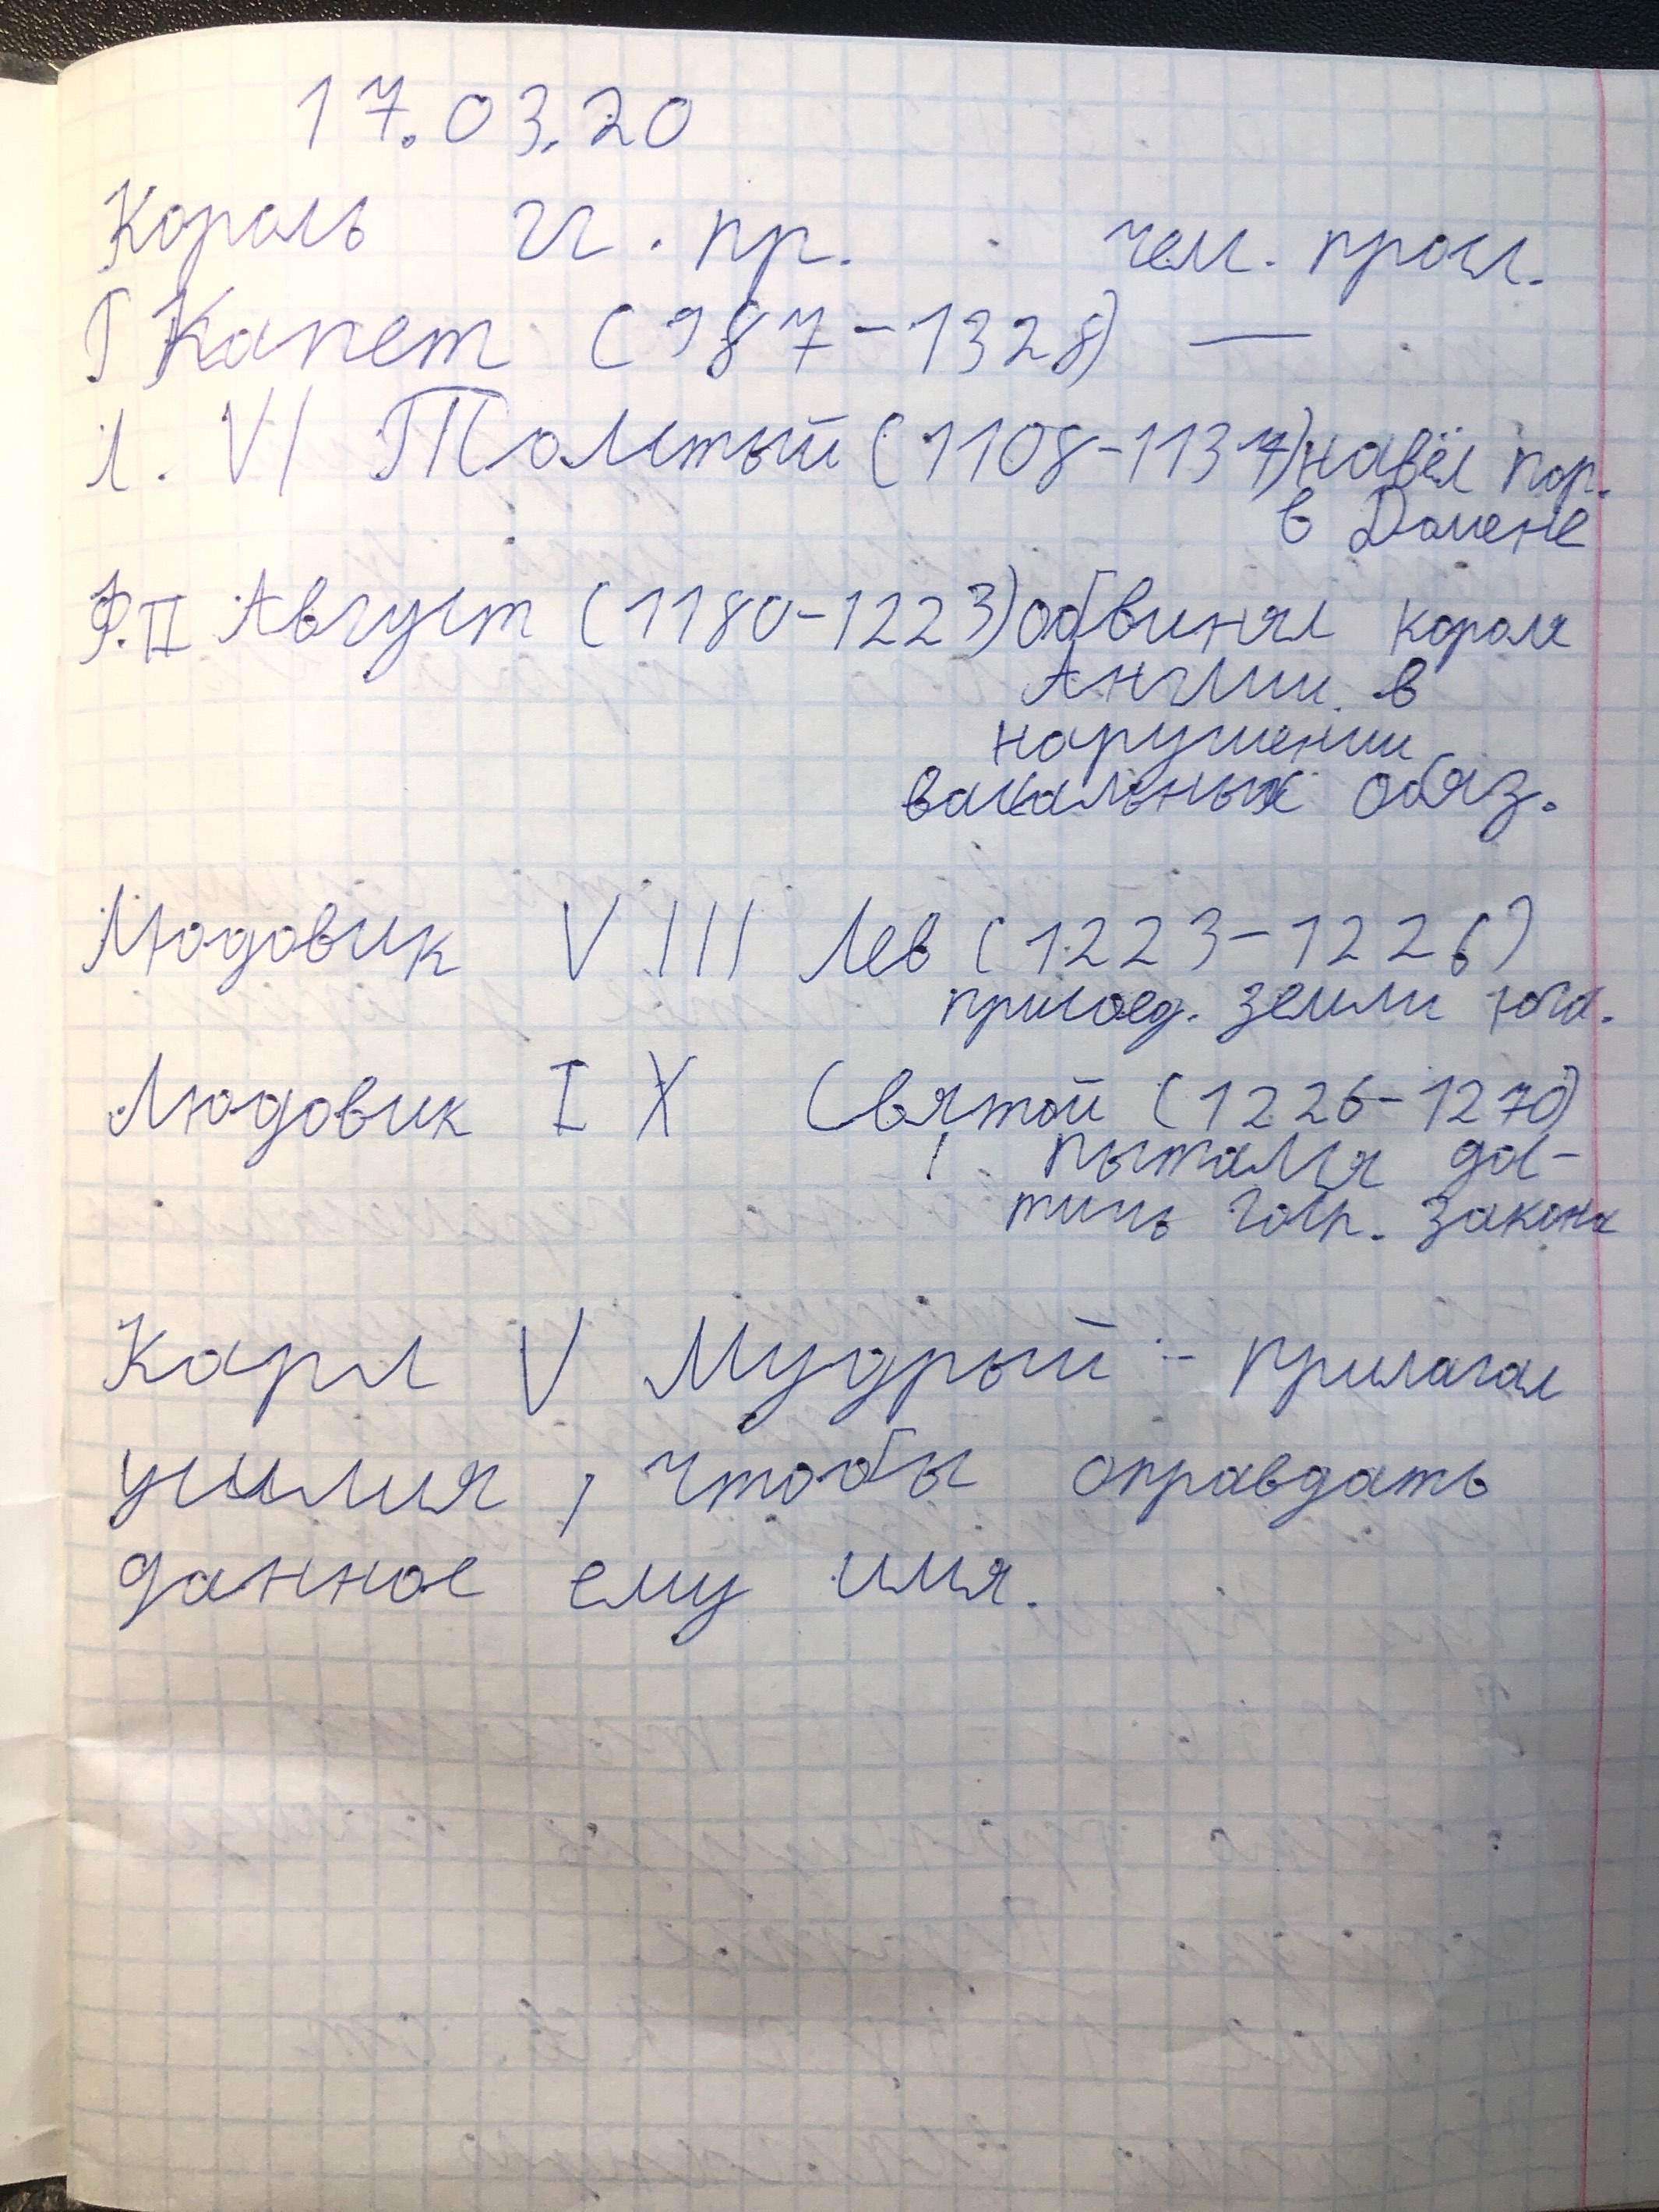 17.03.20
Король гг. пр. чем. просл.
Г Капет (987-1328) —
Л. VI Толстый (1108-1137) навёл пор.
в Домене
Ф. II Август (1180-1223) Обвинял короля
Англии в
нарушении
вассальных обяз.
Людовик VIII Лев (1223-1226)
присоед. земли юга.
Людовик IX Святой (1226-1270)
пытался дос-
тичь госп. закона
Карл V Мудрый - прилагал
усилия, чтобы оправдать
данное ему имя.